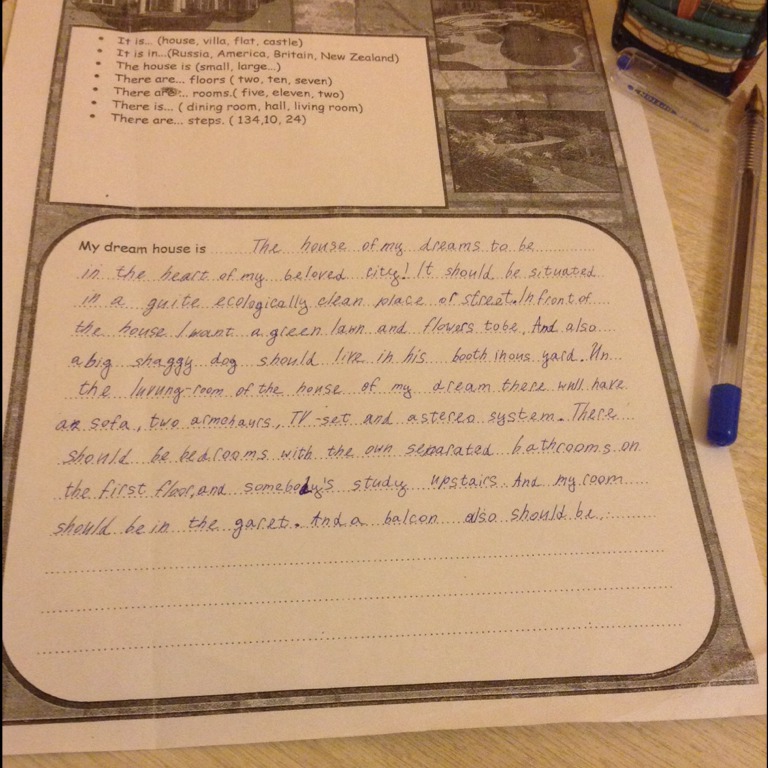 It is... (house, villa, flat, castle)
It is in...(Russia, America, Britain, New Zealand)
The house is (small, large...)
There are... floors ( two, ten, seven)
There are... rooms.( five, eleven, two)
There is... ( dining room, hall, living room)
There are... steps. ( 134,10, 24)
My dream house is The house of my dreams to be
in the heart of my beloved city! It should be situated
in a guite ecologically clean place or street. In front of
the house I want a green lawn and flowers to be. And also
a big shaggy dog should live in his booth in ous yard. Un
the luvung-room of the house of my dream there will have
an sofa, two armchaurs, TV-set and a stereo system. There
should be bedrooms with the own separated bathrooms on
the first floor, and somebody's study upstairs. And my room
should be in the garet. And a balcon also should be.